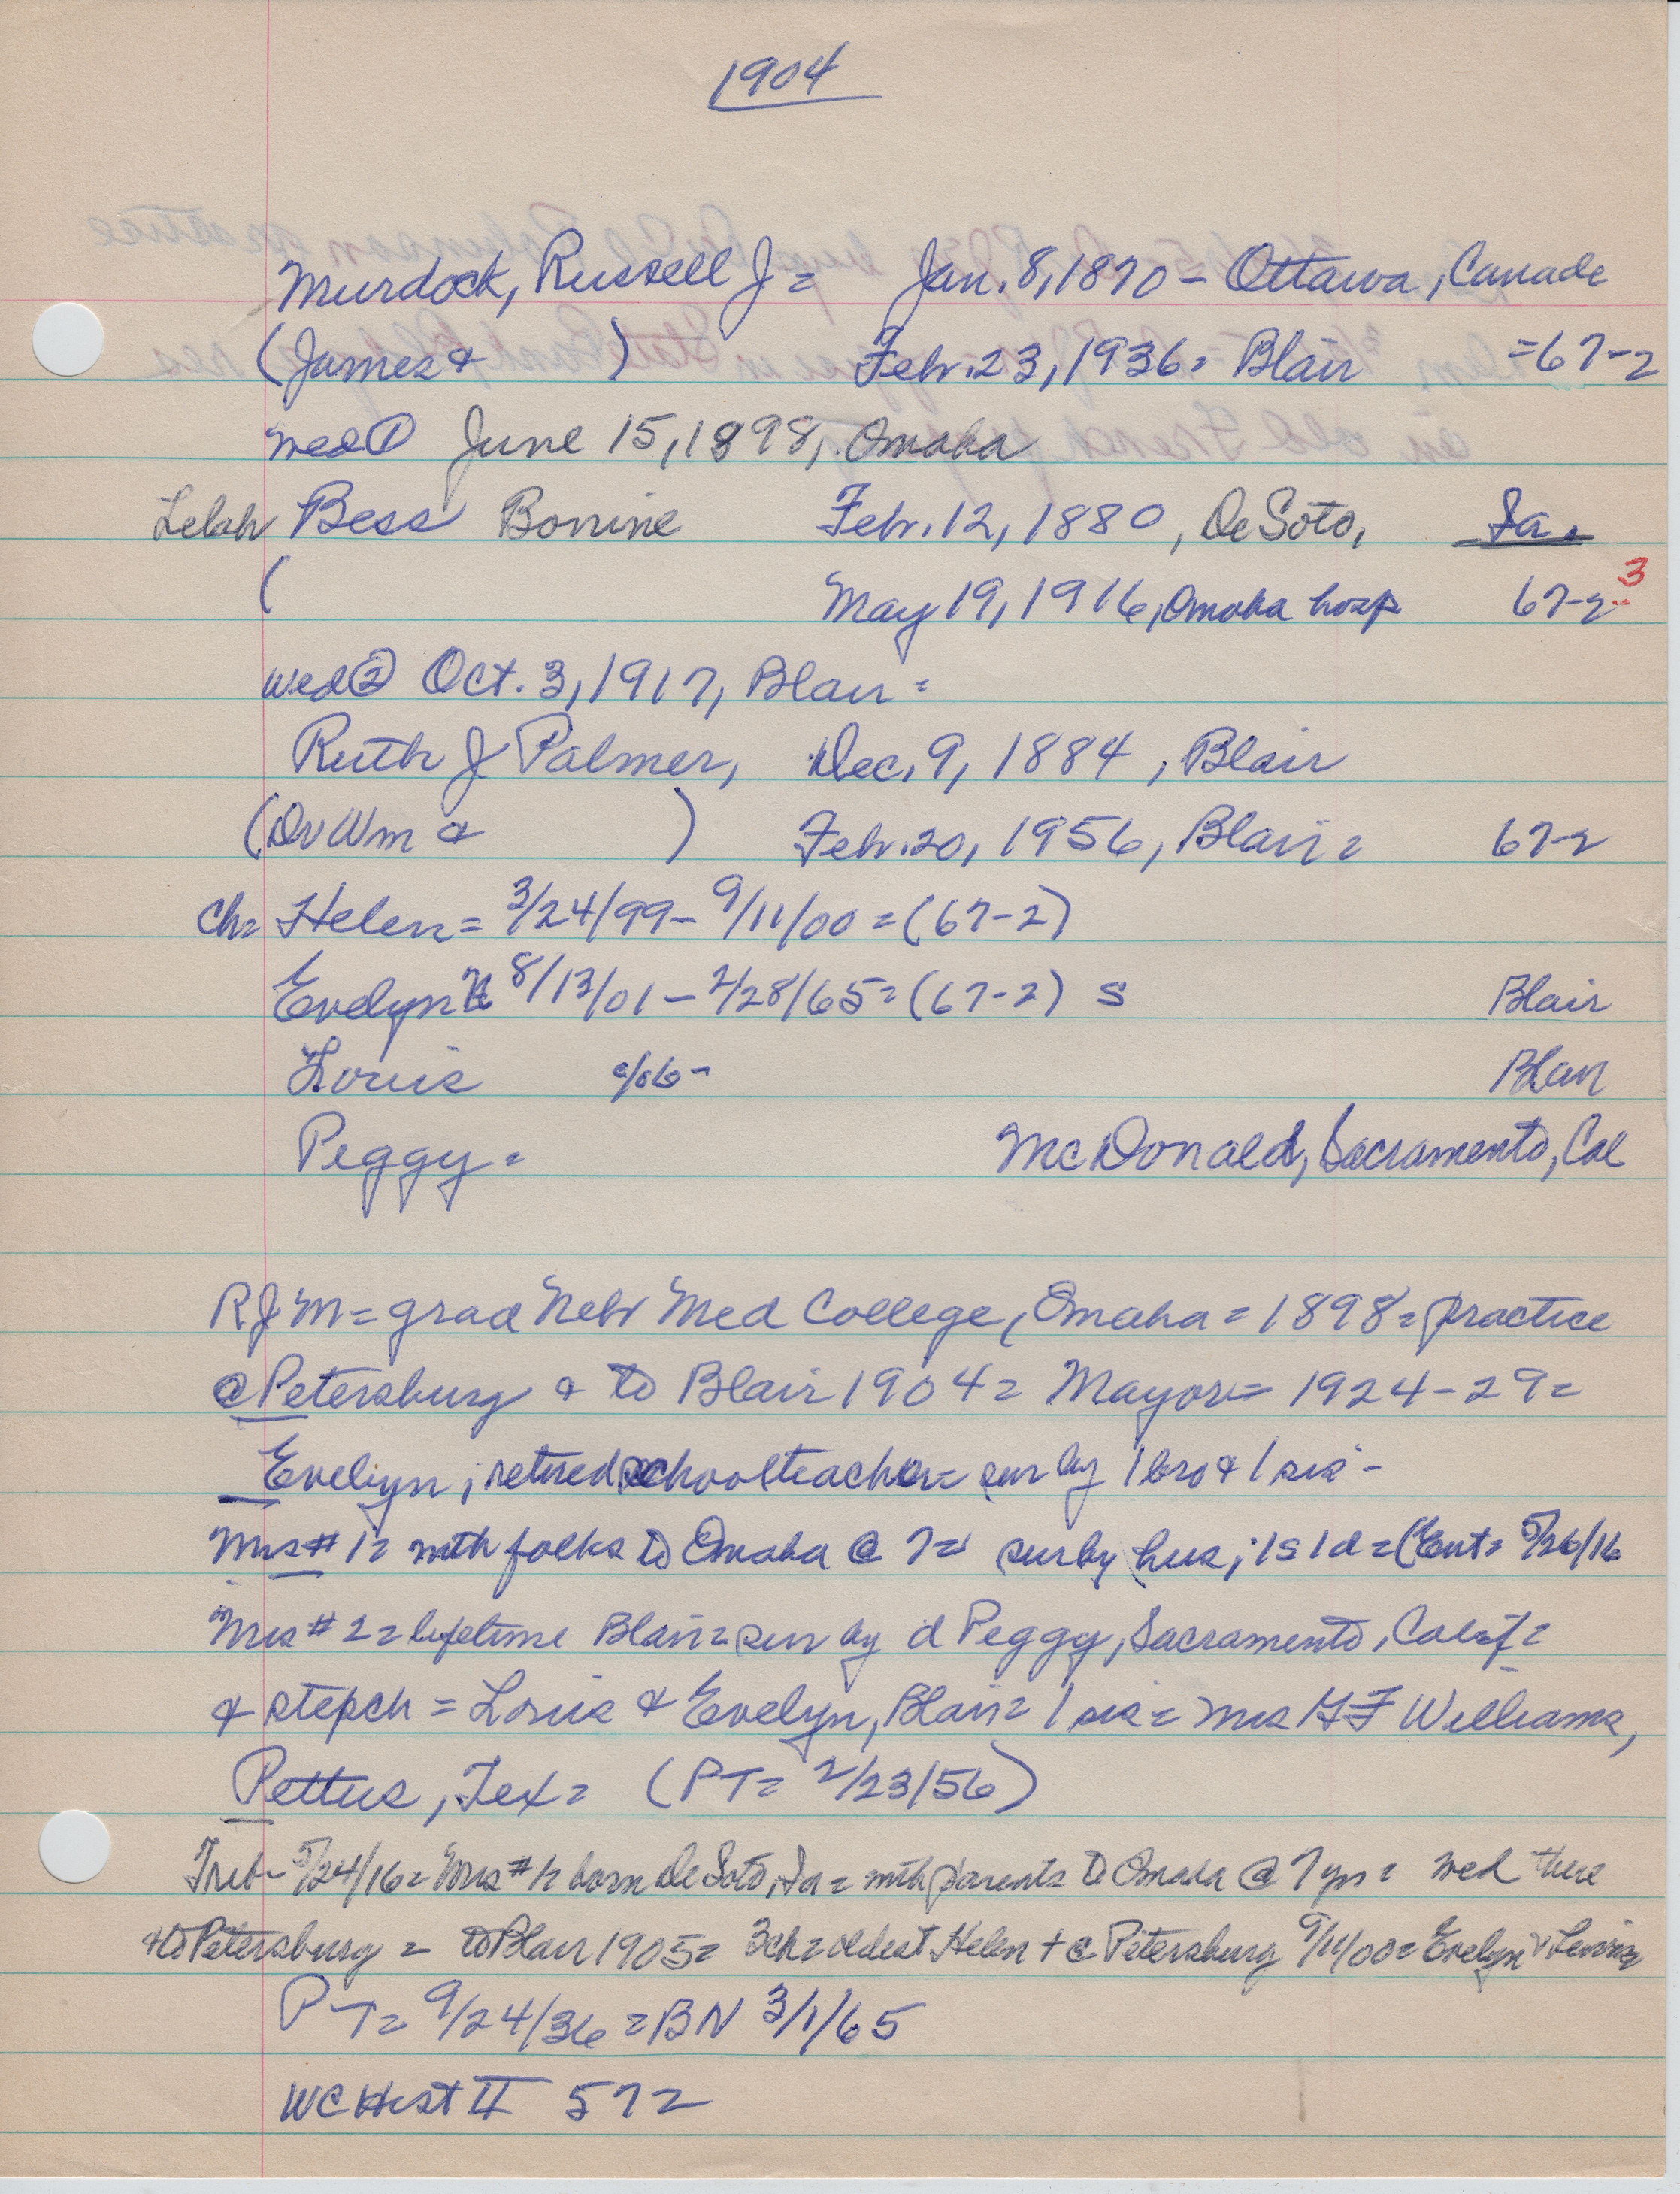 1904
Murdock, Russell J = Jan. 8, 1870 - Ottawa, Canada
(James & ) Febr. 23, 1936 = Blair = 67-2
wed ① June 15, 1898, Omaha
Lelah Bess Bonine Febr. 12, 1880, DeSoto, Ia.
( May 19, 1916, Omaha hosp 67-2 3
wed ② Oct. 3, 1917, Blair =
Ruth J Palmer, Dec. 9, 1884, Blair
(Dr Wm & ) Febr. 20, 1956, Blair = 67-2
Ch = Helen = 3/24/99 - 9/11/00 = (67-2)
Evelyn 8/13/01 - 2/28/65 = (67-2) S Blair
Louis c/06 - Blair
Peggy = McDonald, Sacramento, Cal
R J M = grad Nebr Med College, Omaha = 1898 = practice
@ Petersburg & to Blair 1904 = Mayor = 1924-29 =
Evelyn; retired schoolteacher = sur by 1 bro & 1 sis -
Mrs # 1 = with folks to Omaha @ 7 = sur by hus; 1 s 1 d = (Ent = 5/26/16
Mrs # 2 = lifetime Blair = sur by d Peggy, Sacramento, Calif =
& stepch = Louis & Evelyn, Blair = 1 sis = Mrs Williams,
Pettus, Tex = (PT = 2/23/56)
Trib - 5/24/16 = Mrs # 1 = born De Soto, Ia = with parents to Omaha @ 7 yrs = wed there
& to Petersburg = to Blair 1905 = 3 ch = oldest Helen + @ Petersburg 9/11/00 = Evelyn & Lewis
PT = 9/24/36 = BN 3/1/65
WC Hist II 572